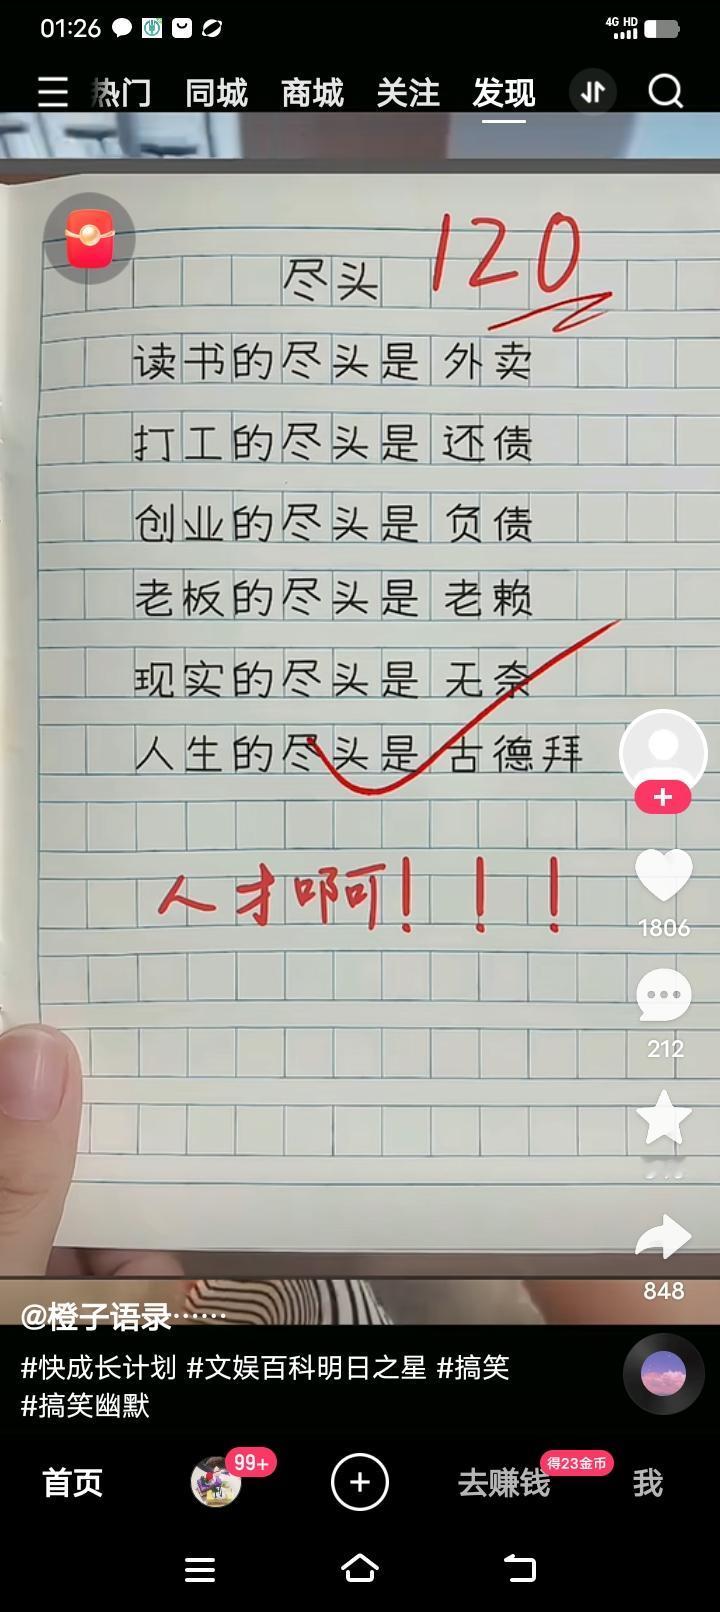 01:26
4G HD
热门 同城 商城 关注 发现
120
尽头
读书的尽头是 外卖
打工的尽头是 还债
创业的尽头是 负债
老板的尽头是 老赖
现实的尽头是 无奈
人生的尽头是 古德拜
人才啊！！！
1806
212
848
@橙子语录……
#快成长计划 #文娱百科明日之星 #搞笑
#搞笑幽默
首页 99+ 去赚钱 得23金币 我